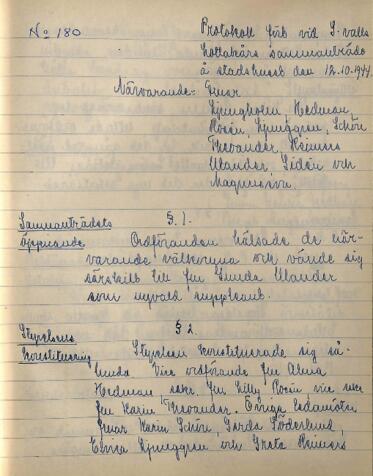 No 180
Protokoll fört vid S-valls
lottakårs sammanträde
å stadshuset den 12.10.1944.
Närvarande: Fruar
Ljungholm, Hedman,
Rosén, Ljunggren, Schön
Thevander, Reimers
Ulander, Sidén och
Magnusson.
Sammanträdets § 1.
öppnande Ordföranden hälsade de när-
varande välkomna och vände sig
särskilt till fru Ulander
som nyvald suppleant.
Styrelsens § 2.
konstituering Styrelsen konstituerade sig så-
lunda Vice ordförande fru Alma
Hedman sekr. fru Lilly Rosén vice sekr
fru Karin Thevander. Övriga ledamöter
fruar Karin Schön, Gerda Söderlund,
Elvira Ljunggren och Greta Reimers